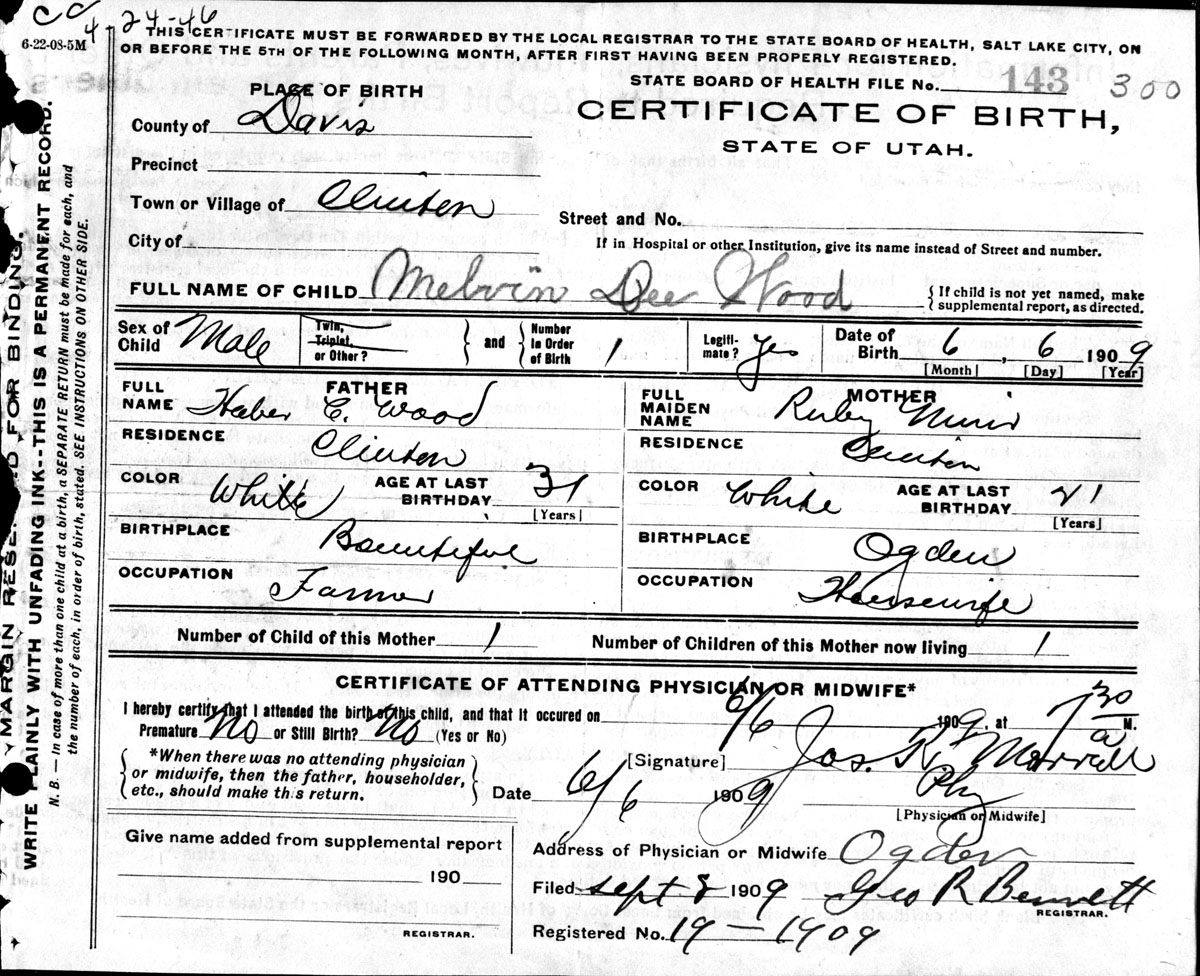 CC 4-24-46
6-22-08-5M
THIS CERTIFICATE MUST BE FORWARDED BY THE LOCAL REGISTRAR TO THE STATE BOARD OF HEALTH, SALT LAKE CITY, ON
OR BEFORE THE 5TH OF THE FOLLOWING MONTH, AFTER FIRST HAVING BEEN PROPERLY REGISTERED.
STATE BOARD OF HEALTH FILE No. 143 300
PLACE OF BIRTH
CERTIFICATE OF BIRTH,
STATE OF UTAH.
County of Davis
Precinct
Town or Village of Clinton
Street and No.
City of
If in Hospital or other Institution, give its name instead of Street and number.
FULL NAME OF CHILD Melvin Dee Wood
{If child is not yet named, make
supplemental report, as directed.
Sex of Child Male
Twin, Triplet, or Other?
} and {
Number in Order of Birth 1
Legiti-mate? Yes
Date of Birth 6, 6 1909
[Month] [Day] [Year]
FATHER
FULL NAME Heber C. Wood
RESIDENCE Clinton
COLOR White AGE AT LAST BIRTHDAY 31
[Years]
BIRTHPLACE Bountiful
OCCUPATION Farmer
MOTHER
FULL MAIDEN NAME Ruby Muir
RESIDENCE Clinton
COLOR White AGE AT LAST BIRTHDAY 21
[Years]
BIRTHPLACE Ogden
OCCUPATION Housewife
Number of Child of this Mother 1 Number of Children of this Mother now living 1
CERTIFICATE OF ATTENDING PHYSICIAN OR MIDWIFE*
I hereby certify that I attended the birth of this child, and that it occured on 6/6 1909, at 7 30 a M.
Premature No or Still Birth? No (Yes or No)
*When there was no attending physician
or midwife, then the father, householder,
etc., should make this return.
[Signature] Jos. R. Morrell
Date 6/6 1909 Phy
[Physician or Midwife]
Give name added from supplemental report
190
REGISTRAR.
Address of Physician or Midwife Ogden
Filed Sept 8 1909 Geo R Bennett
REGISTRAR.
Registered No. 19-1909
MARGIN RESERVED FOR BINDING.
WRITE PLAINLY WITH UNFADING INK--THIS IS A PERMANENT RECORD.
N. B. In case of more than one child at a birth, a SEPARATE RETURN must be made for each, and
the number of each, in order of birth, stated. SEE INSTRUCTIONS ON OTHER SIDE.